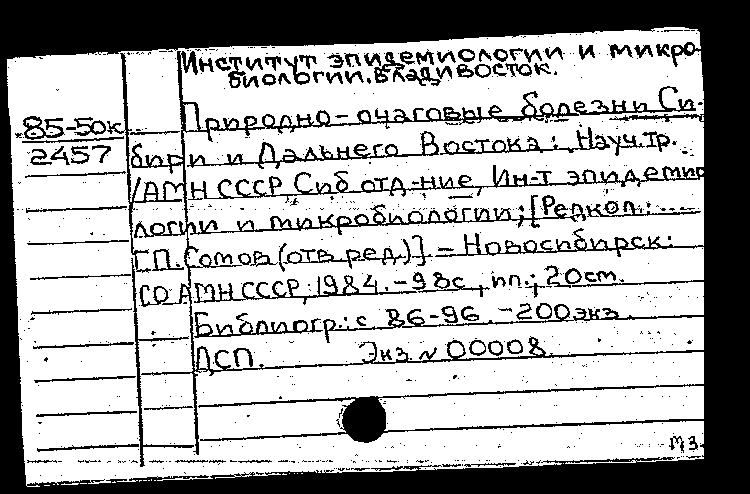 Институт эпидемиологии и микро-
биологии. Владивосток.
85-50к
2457
Природно-очаговые болезни Си-
бири и Дальнего Востока: Науч. тр.
/АМН СССР Сиб отд-ние, Ин-т эпидемио
логии и микробиологии; [Редкол.: ...
Г.П. Сомов (отв ред.)]. - Новосибирск:
СО АМН СССР, 1984. - 98с, ил.; 20см.
Библиогр.: с 86-96. - 200экз.
ДСП. Экз. № 00008.
МЗ.